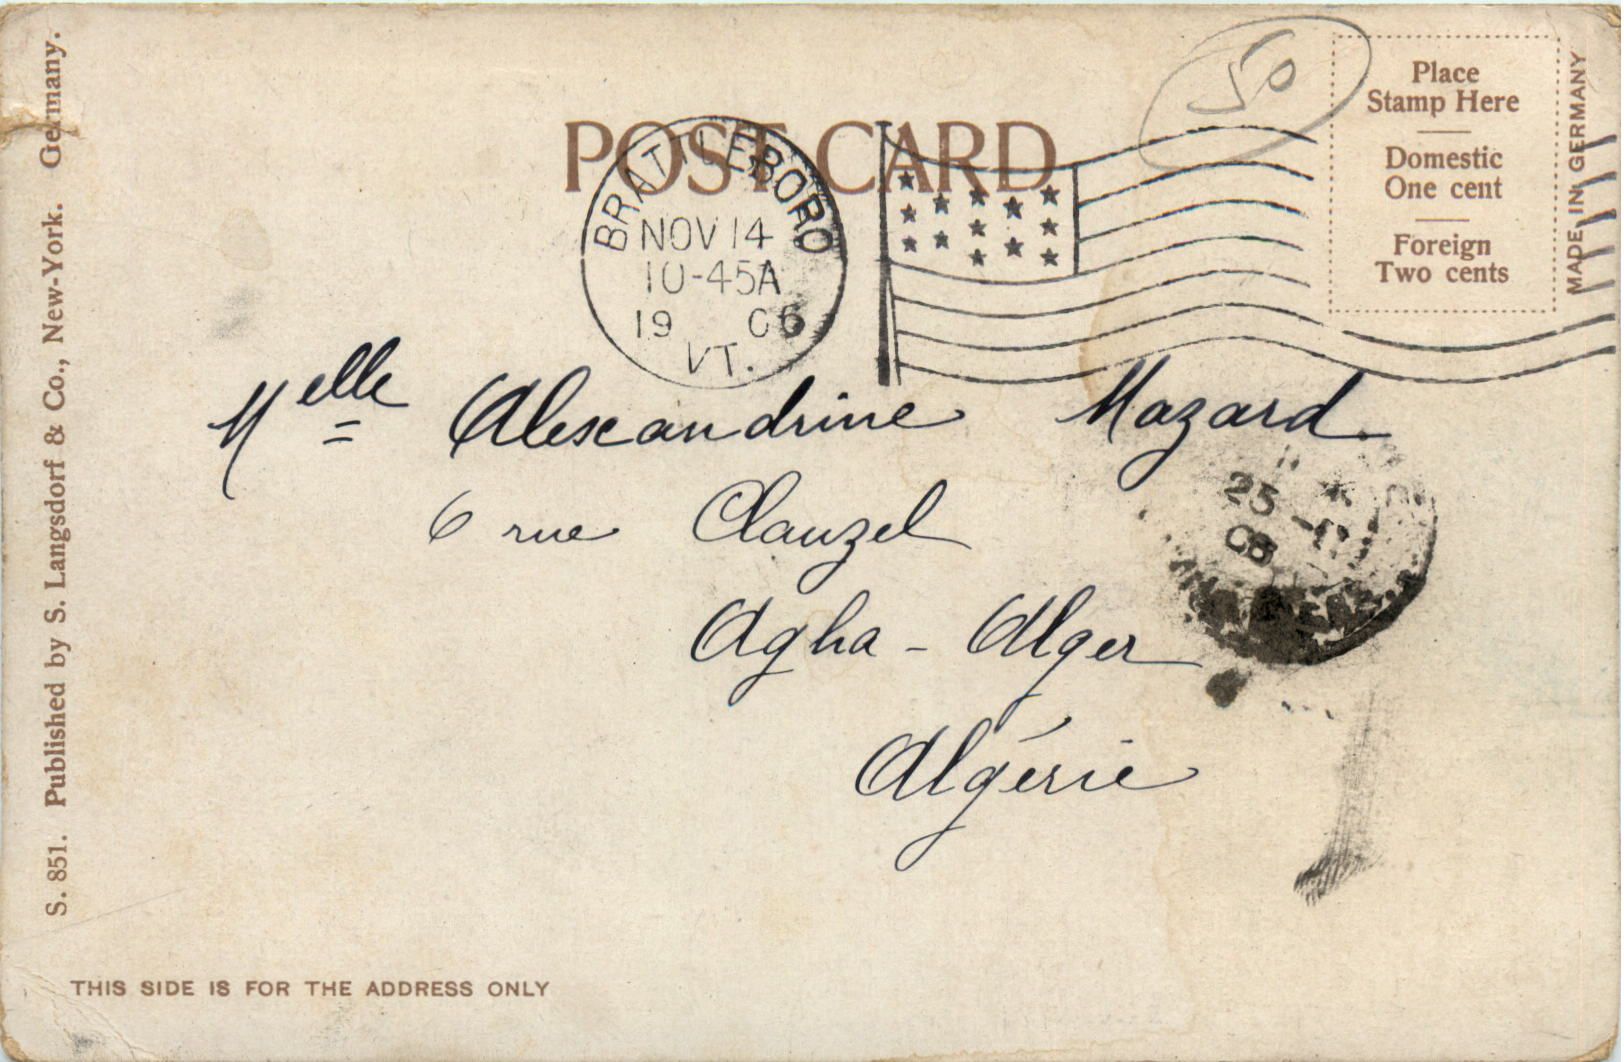 POST CARD
50
Place
Stamp Here
Domestic
One cent
Foreign
Two cents
MADE IN GERMANY
BRATTLEBORO
NOV 14
10-45A
19 06
VT.
Melle Alexandrine Mazard
6 rue Clauzel
Agha - Alger
Algérie
25
S. 851. Published by S. Langsdorf & Co., New-York. Germany.
THIS SIDE IS FOR THE ADDRESS ONLY